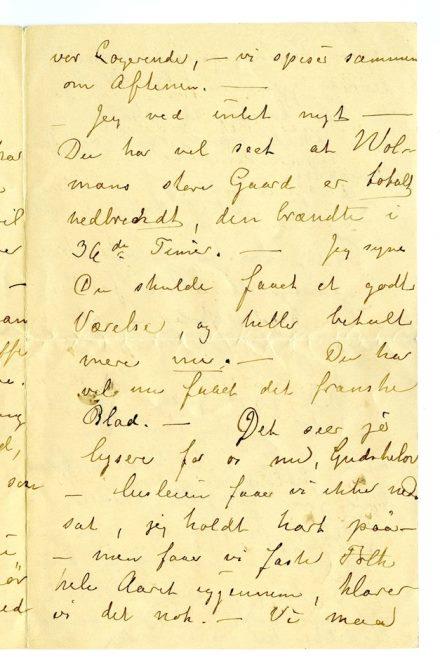 vor Logerende, — vi spiser sammen
om Aftenen. —
— Jeg ved intet nyt —
Du har vel seet at Wol-
mans store Gaard er totalt
nedbrændt, den brændte i
36 de Timer. — Jeg synes
Du skulde faaet et godt
Værelse, og heller betalt
mere nu. — Du har
vel nu faaet det franske
Blad. — Det seer jo
lysere for os nu, Gudskelov
— husleien faaer vi ikke ned-
sat, jeg holdt haardt paa —
— men faaer vi faste Folk
hele Aaret igjennem, klarer
vi det nok. — Vi maa